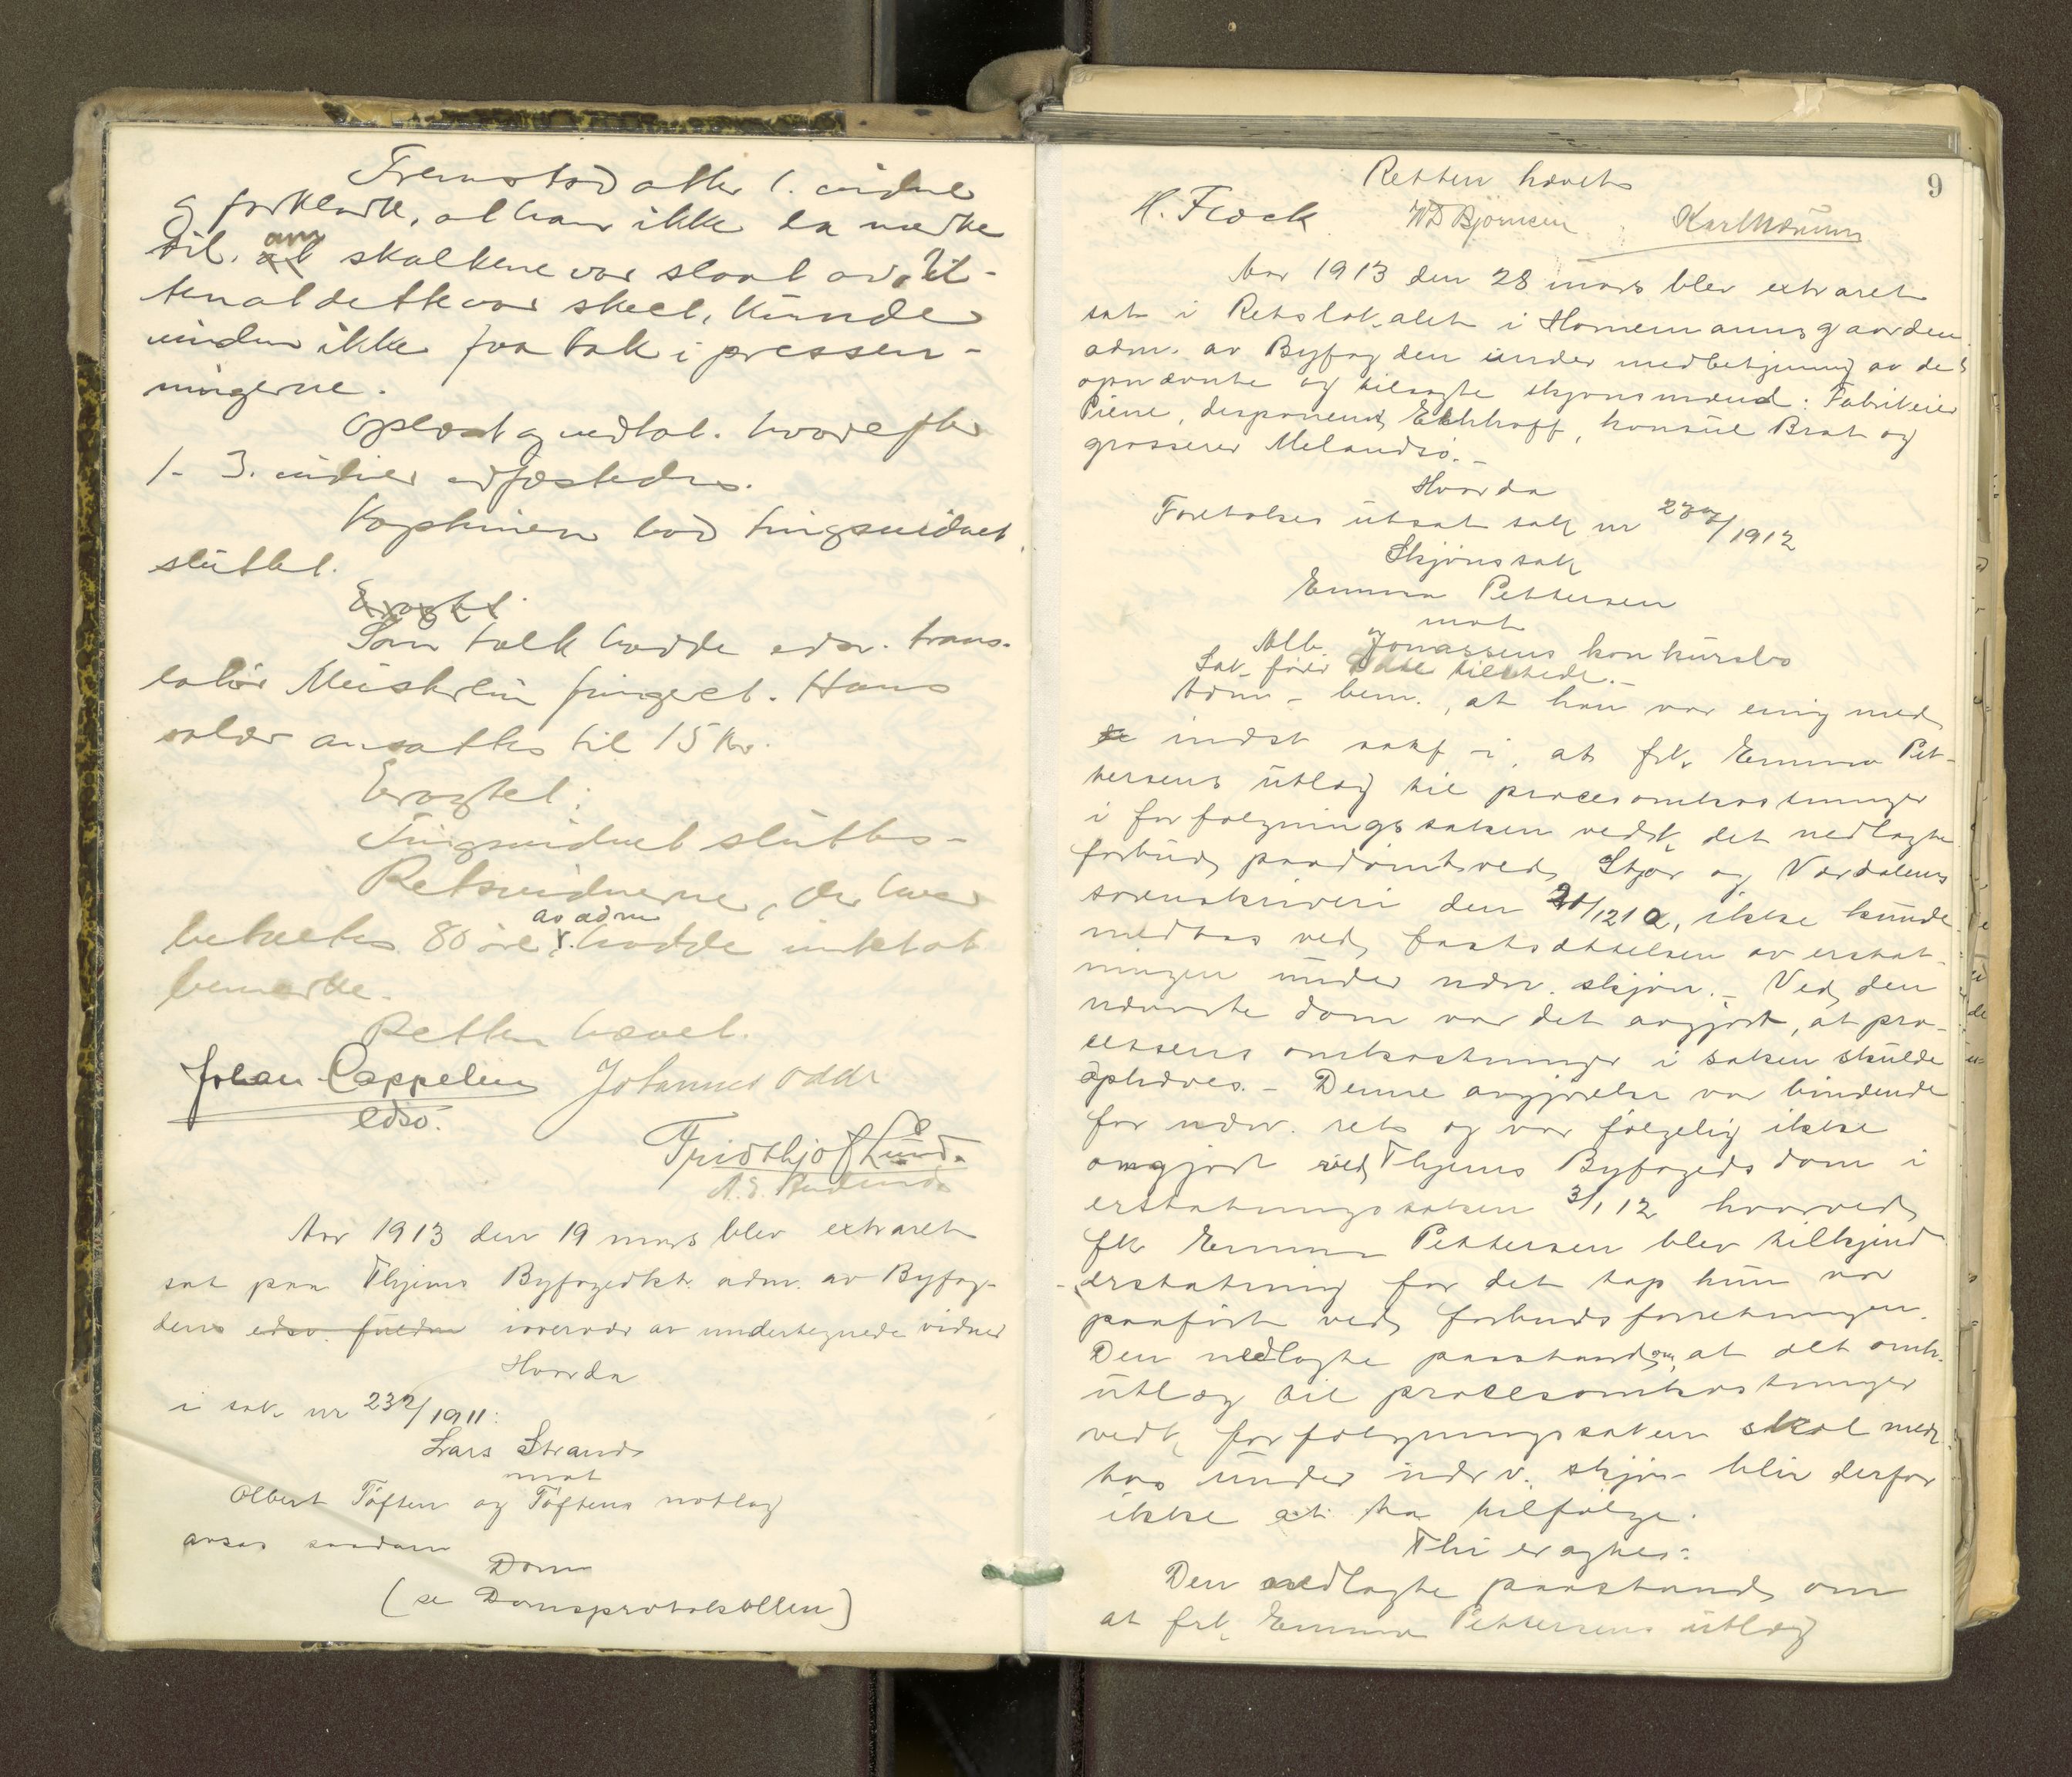 Fremstod atter 1. vidne
og forklarte, at han ikke la merke
til, om skalkene var slaat av. Ut-
ten at dette var skeet, kunde
vinden ikke faa tak i pressen-
ningerne.
Oplæst og vedtat. hvorefter
1 - 3. vidner edfæstedes.
Kapteinen bød tingsvidnet
sluttet.
Eragtet
Som tolk hadde edsv. trans-
latør Meisterlin fungeret. Hans
salær ansattes til 15 Kr.
Eragtet:
Tingsvidnet sluttes -
Retsvidnerne, der hver
betaltes 80 øre av adm. hadde intet at
bemerke.
Retten hævet.
Johan Cappelen Johannes Odde
edsv.
Fridthjof Lund.
Aar 1913 den 19 mars blev extraret
sat paa Thjems Byfogedkt. adm. av Byfog-
dens edsv. fuldm i overvær av undertegnede vidner
Hvorda
i sak nr 232/1911:
Lars Strand
mot
Albert Tøften og Tøftens notlag
avsas saadan
Dom
(se Domsprotokollen)
9
Retten hævets
H. Flock WD Björnsen Karl Mæum
Aar 1913 den 28 mars blev extraret
sat i Retslokalet i Hornemannsgaarden
adm. av Byfogden under medbetjening av de
opnævnte og tilsagte skjønsmænd: Fabrikeier
Piene, disponent Eckhoff, konsul Brat og
grosserer Melandsø. -
Hvorda
Foretoges utsat sak nr 237/1912
Skjønssak
Emma Pettersen
mot
Alb. Jonassens konkursbo
Sak-fører Dahl tilstede. -
Adm - bem., at han var enig med
indst sakf - i, at frk. Emma Pet-
tersens utlæg til procesomkostninger
i forfølgningssaken vedk det nedlagte
forbud paadømt ved Stjør og Værdalens
sorenskriveri den 21/12 10, ikke kunde
medtas ved fastsættelsen av erstat-
ningen under nærv. skjøn. - Ved den
nævnte dom var det avgjort, at pro-
cessens omkostninger i saken skulde
ophæves. - Denne avgjørelse var bindende
for nærv. ret og var følgelig ikke
omgjort ved Thjems Byfogeds dom i
erstatningssaken 3/1 12 hvorved
frk Emma Pettersen blev tilkjend
erstatning for det tap hun var
paaført ved forbudsforretningen.
Den nedlagte paastand om, at alt omk.
utlæg til procesomkostninger
vedk forfølgningssaken skal med-
tas under nærv. skjøn blir derfor
ikke at ta tilfølge.
Thi eragtes:
Den nedlagte paastand om
at frk. Emma Pettersens utlæg